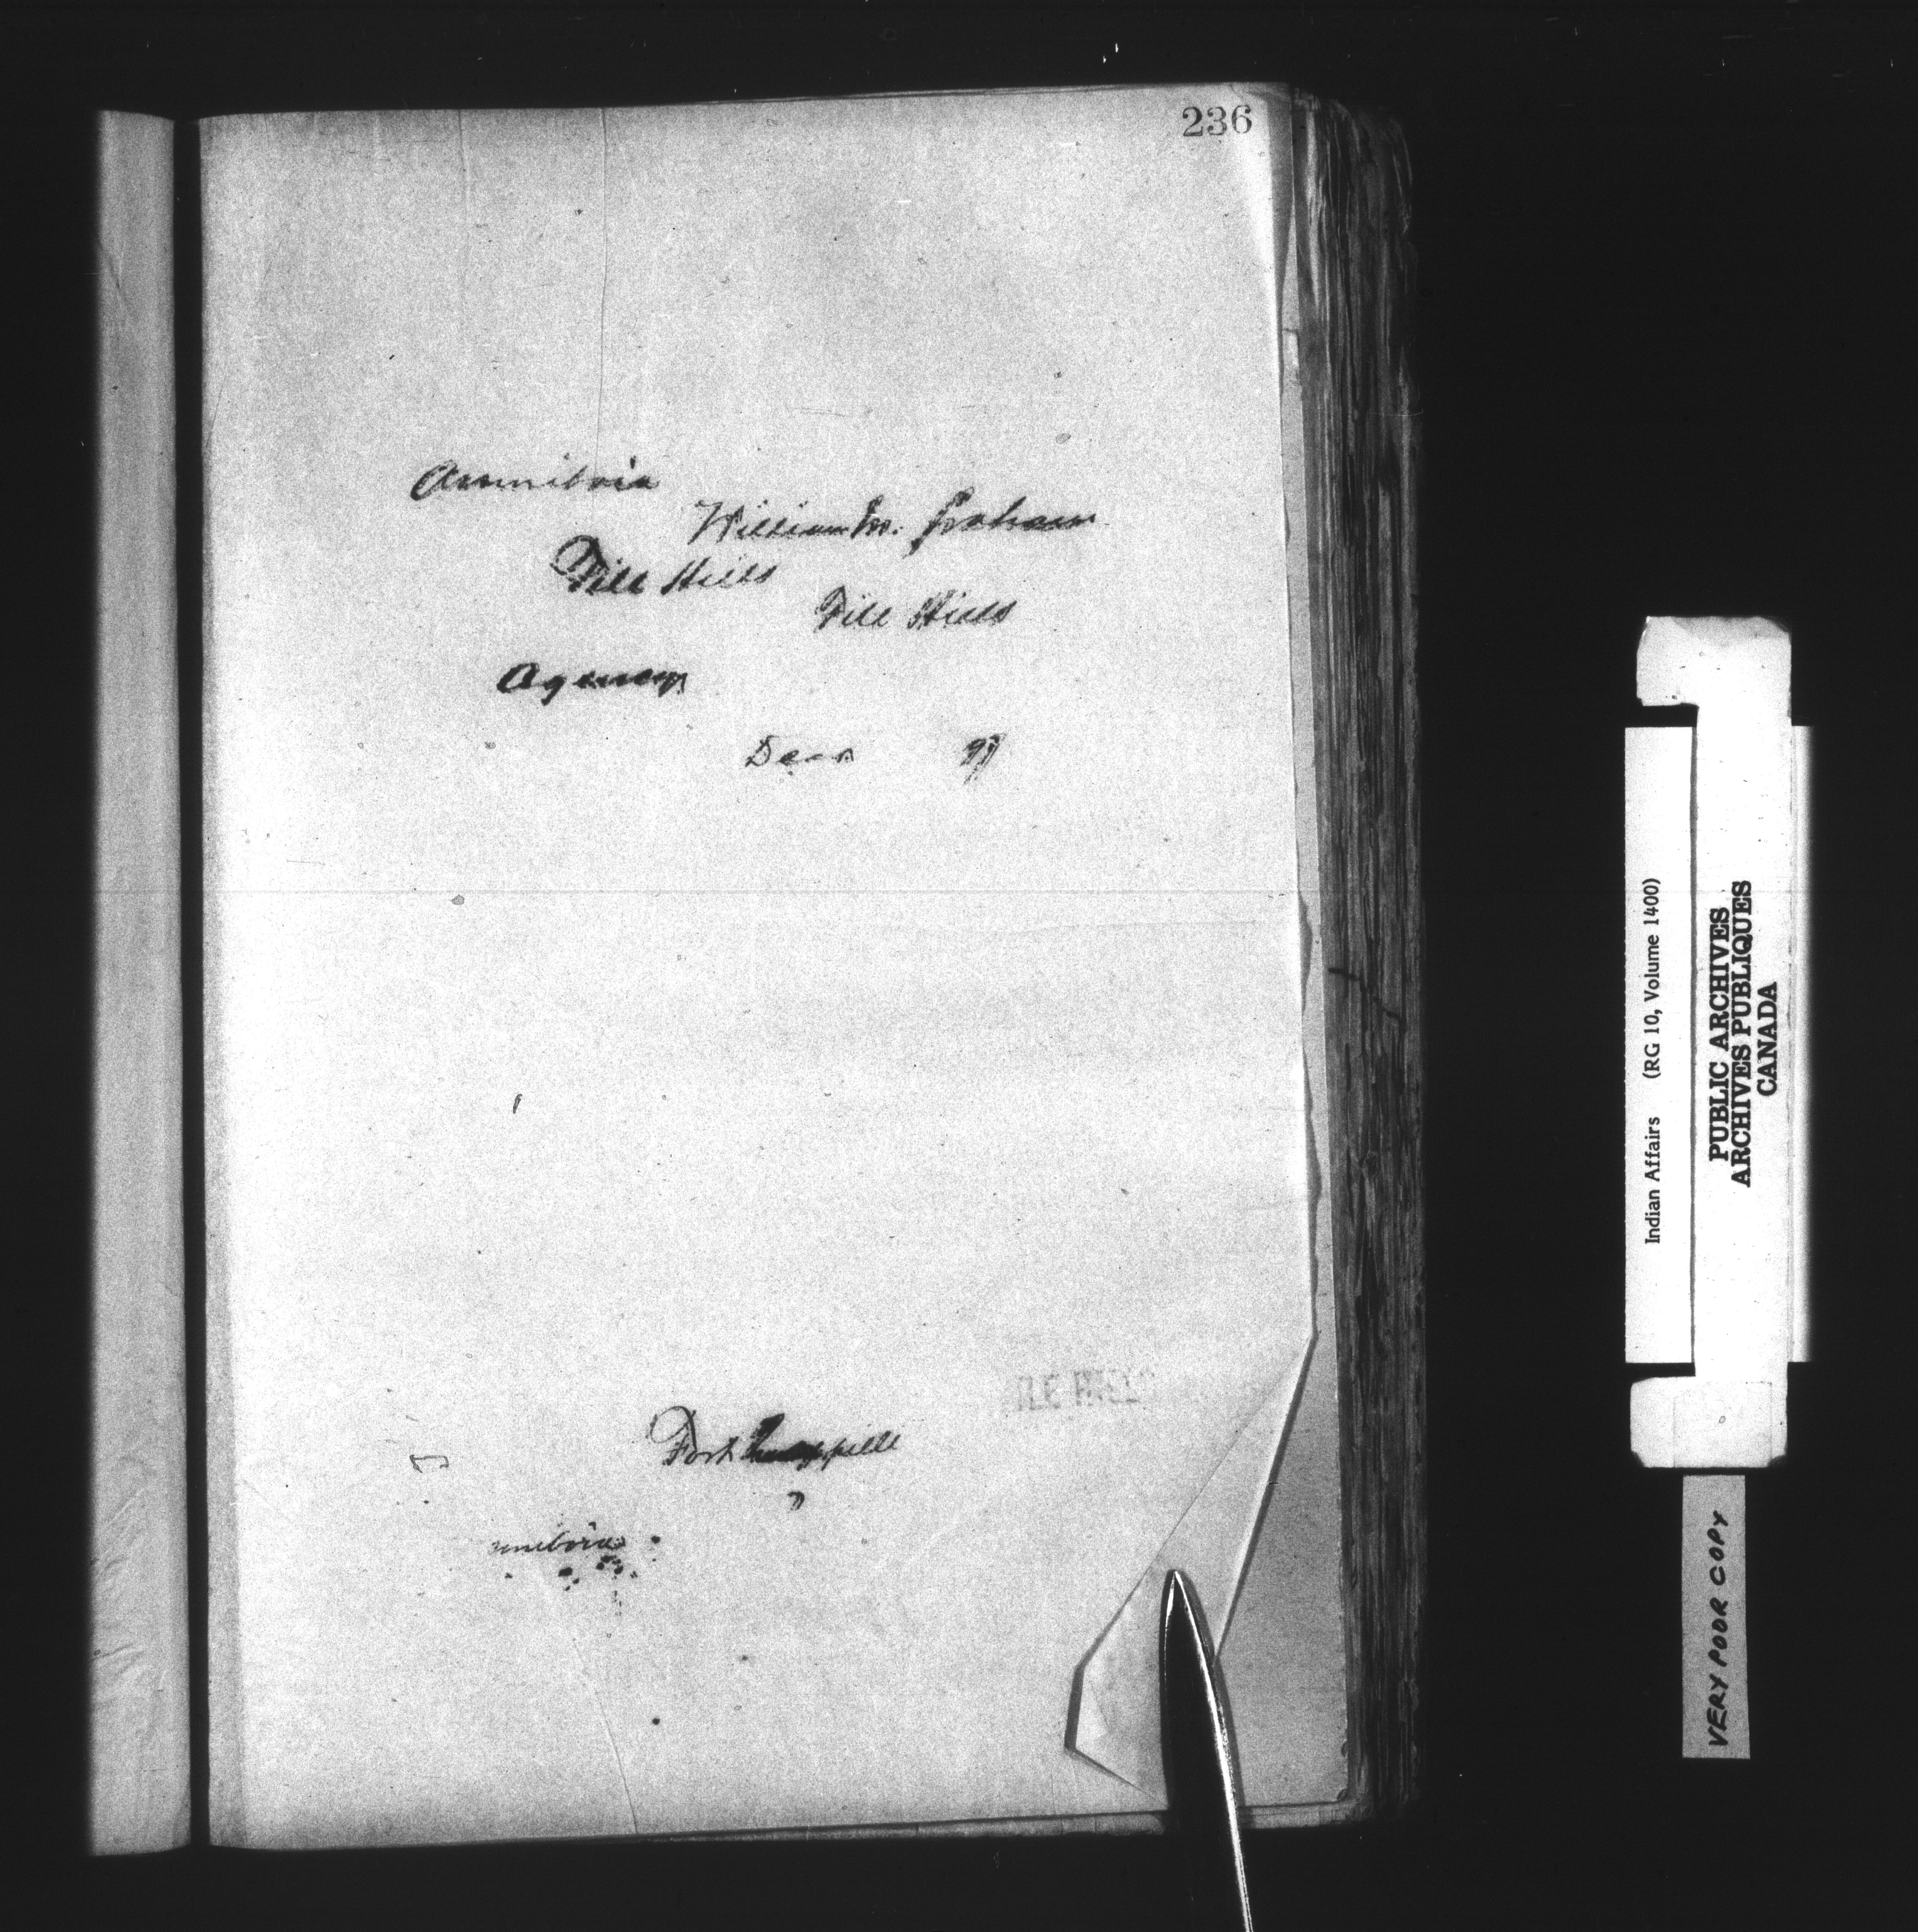 236
Assiniboia
William M. Graham
File Hills
File Hills
Agency
Decr 97
LE HILLS
Fort Qu'appelle
niboia
Indian Affairs (RG 10, Volume 1400)
PUBLIC ARCHIVES
ARCHIVES PUBLIQUES
CANADA
VERY POOR COPY